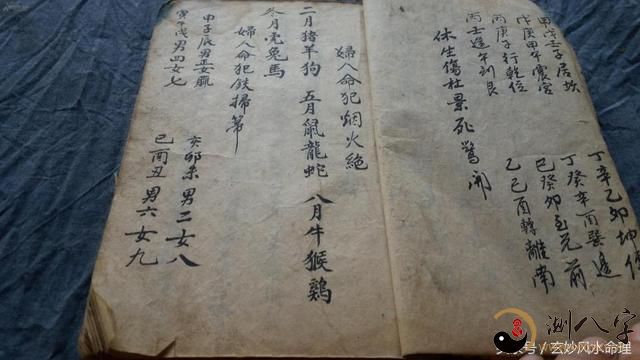 甲戊壬子居坎
戊庚甲午震宮
丙庚子行乾位
丙壬逢午到艮
丁辛乙卯坤
丁癸辛酉巽逢
巳癸卯至兌前
乙己酉轉離南
休生傷杜景死驚開
婦人命犯烟火絕
二月猪羊狗 五月鼠龍蛇 八月牛猴鷄
冬月虎兔馬
婦人命犯鉄掃箒
甲子辰男正女臘
寅午戌男四女七
亥卯未男二女八
巳酉丑男六女九
測八字
号/玄妙风水命理